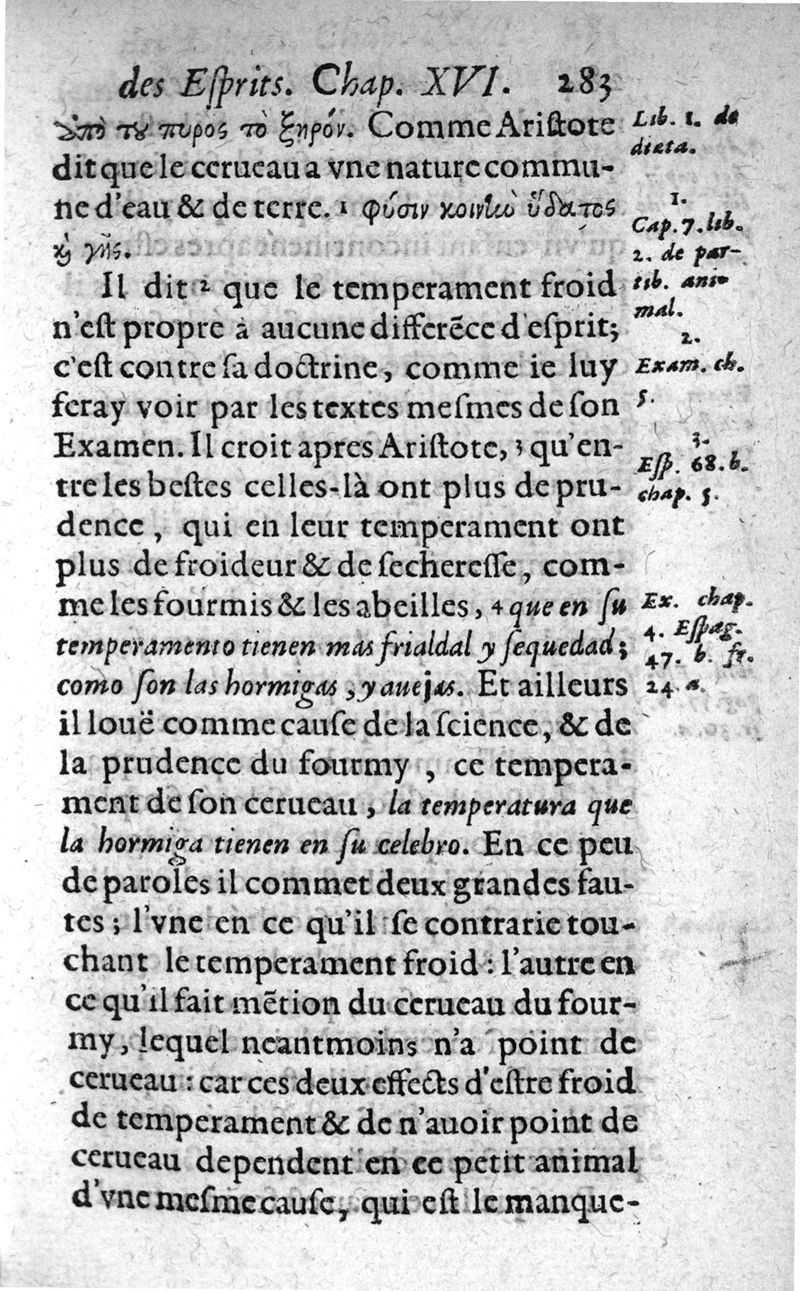 des Eſprits. Chap. XVI. 283
ὑπὸ τοῦ πυρος τὸ ξηρόν. Comme Ariſtote
dit que le cerueau a vne nature commu-
ne d'eau & de terre. 1 φύσιν κοινὴν ὕδατος
ϗ γῆς.
Il dit 2 que le temperament froid
n'eſt propre à aucune differẽce d'eſprit;
c'eſt contre ſa doctrine, comme ie luy
feray voir par les textes meſmes de ſon
Examen. Il croit apres Ariſtote, 3 qu'en-
tre les beſtes celles-là ont plus de pru-
dence, qui en leur temperament ont
plus de froideur & de ſechereſſe, com-
me les fourmis & les abeilles, 4 que en ſu
temperamento tienen mas frialdal y ſequedad;
como ſon las hormigas, y auejas. Et ailleurs
il louë comme cauſe de la ſcience, & de
la prudence du fourmy, ce tempera-
ment de ſon cerueau, la temperatura que
la hormiga tienen en ſu celebro. En ce peu
de paroles il commet deux grandes fau-
tes; l'vne en ce qu'il ſe contrarie tou-
chant le temperament froid: l'autre en
ce qu'il fait mẽtion du cerueau du four-
my, lequel neantmoins n'a point de
cerueau: car ces deux effects d'eſtre froid
de temperament & de n'auoir point de
cerueau dependent en ce petit animal
d'vne meſme cauſe, qui eſt le manque-
Lib. 1. de
diæta.
1.
Cap. 7. lib.
2. de par-
tib. ani-
mal.
2.
Exam. ch.
5.
3.
Eſp. 68. b.
chap. 5.
Ex. chap.
4. Eſpag.
47. b. fr.
24 a.